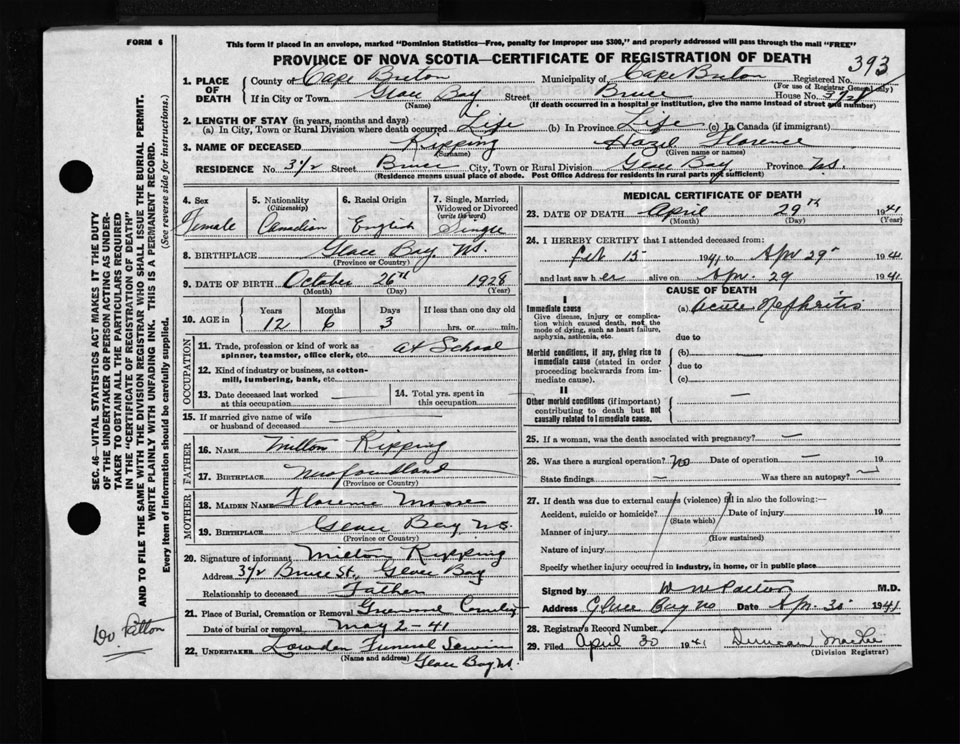 FORM 6
This form if placed in an envelope, marked "Dominion Statistics—Free, penalty for improper use $300," and properly addressed will pass through the mail "FREE"
PROVINCE OF NOVA SCOTIA—CERTIFICATE OF REGISTRATION OF DEATH
393
1. PLACE OF DEATH
County of Cape Breton Municipality of Cape Breton Registered No.
(For use of Registrar General only)
If in City or Town Glace Bay Street Bruce House No. 3½
(Name) (If death occurred in a hospital or institution, give the name instead of street and number)
2. LENGTH OF STAY (in years, months and days)
(a) In City, Town or Rural Division where death occurred Life (b) In Province Life (c) In Canada (if immigrant)
3. NAME OF DECEASED Kipping Hazel Florence
(Surname) (Given name or names)
RESIDENCE No. 3½ Street Bruce City, Town or Rural Division Glace Bay Province N.S.
(Residence means usual place of abode. Post Office Address for residents in rural parts not sufficient)
4. Sex
Female
5. Nationality
(Citizenship)
Canadian
6. Racial Origin
English
7. Single, Married, Widowed or Divorced
(write the word)
Single
8. BIRTHPLACE Glace Bay, N.S.
(Province or Country)
9. DATE OF BIRTH October 26th 1928
(Month) (Day) (Year)
10. AGE in Years Months Days If less than one day old
12 6 3 hrs. or min.
OCCUPATION
11. Trade, profession or kind of work as spinner, teamster, office clerk, etc. At School
12. Kind of industry or business, as cotton-mill, lumbering, bank, etc.
13. Date deceased last worked at this occupation
14. Total yrs. spent in this occupation
15. If married give name of wife or husband of deceased
FATHER
16. NAME Milton Kipping
17. BIRTHPLACE Newfoundland
(Province or Country)
MOTHER
18. MAIDEN NAME Florence
19. BIRTHPLACE Glace Bay N.S.
(Province or Country)
20. Signature of informant Milton Kipping
Address 3½ Bruce St., Glace Bay
Relationship to deceased Father
21. Place of Burial, Cremation or Removal Greenwood Cemetery
Date of burial or removal May 2 - 41
22. UNDERTAKER Lowden Funeral Service
(Name and address) Glace Bay, N.S.
MEDICAL CERTIFICATE OF DEATH
23. DATE OF DEATH April 29th 1941
(Month) (Day) (Year)
24. I HEREBY CERTIFY that I attended deceased from:
Feb 15 1941 to Apr 29 1941
and last saw her alive on Apr. 29 1941
CAUSE OF DEATH
I
Immediate cause
Give disease, injury or complication which caused death, not the mode of dying, such as heart failure, asphyxia, asthenia, etc.
(a) Acute Nephritis
due to
Morbid conditions, if any, giving rise to immediate cause (stated in order proceeding backwards from immediate cause).
(b)
due to
(c)
II
Other morbid conditions (if important) contributing to death but not causally related to immediate cause.
25. If a woman, was the death associated with pregnancy?
26. Was there a surgical operation? No Date of operation 19
State findings Was there an autopsy?
27. If death was due to external causes (violence) fill in also the following:—
Accident, suicide or homicide? Date of injury 19
(State which)
Manner of injury
(How sustained)
Nature of injury
Specify whether injury occurred in industry, in home, or in public place
Signed by M.D.
Address Glace Bay NS Date Apr. 30 1941
28. Registrar's Record Number
29. Filed April 30 1941 Duncan
(Division Registrar)
SEC. 46—VITAL STATISTICS ACT MAKES IT THE DUTY
OF THE UNDERTAKER OR PERSON ACTING AS UNDER-
TAKER TO OBTAIN ALL THE PARTICULARS REQUIRED
IN THE "CERTIFICATE OF REGISTRATION OF DEATH"
AND TO FILE THE SAME WITH THE DIVISION REGISTRAR WHO SHALL ISSUE THE BURIAL PERMIT.
WRITE PLAINLY WITH UNFADING INK. THIS IS A PERMANENT RECORD.
Every item of information should be carefully supplied. (See reverse side for instructions.)